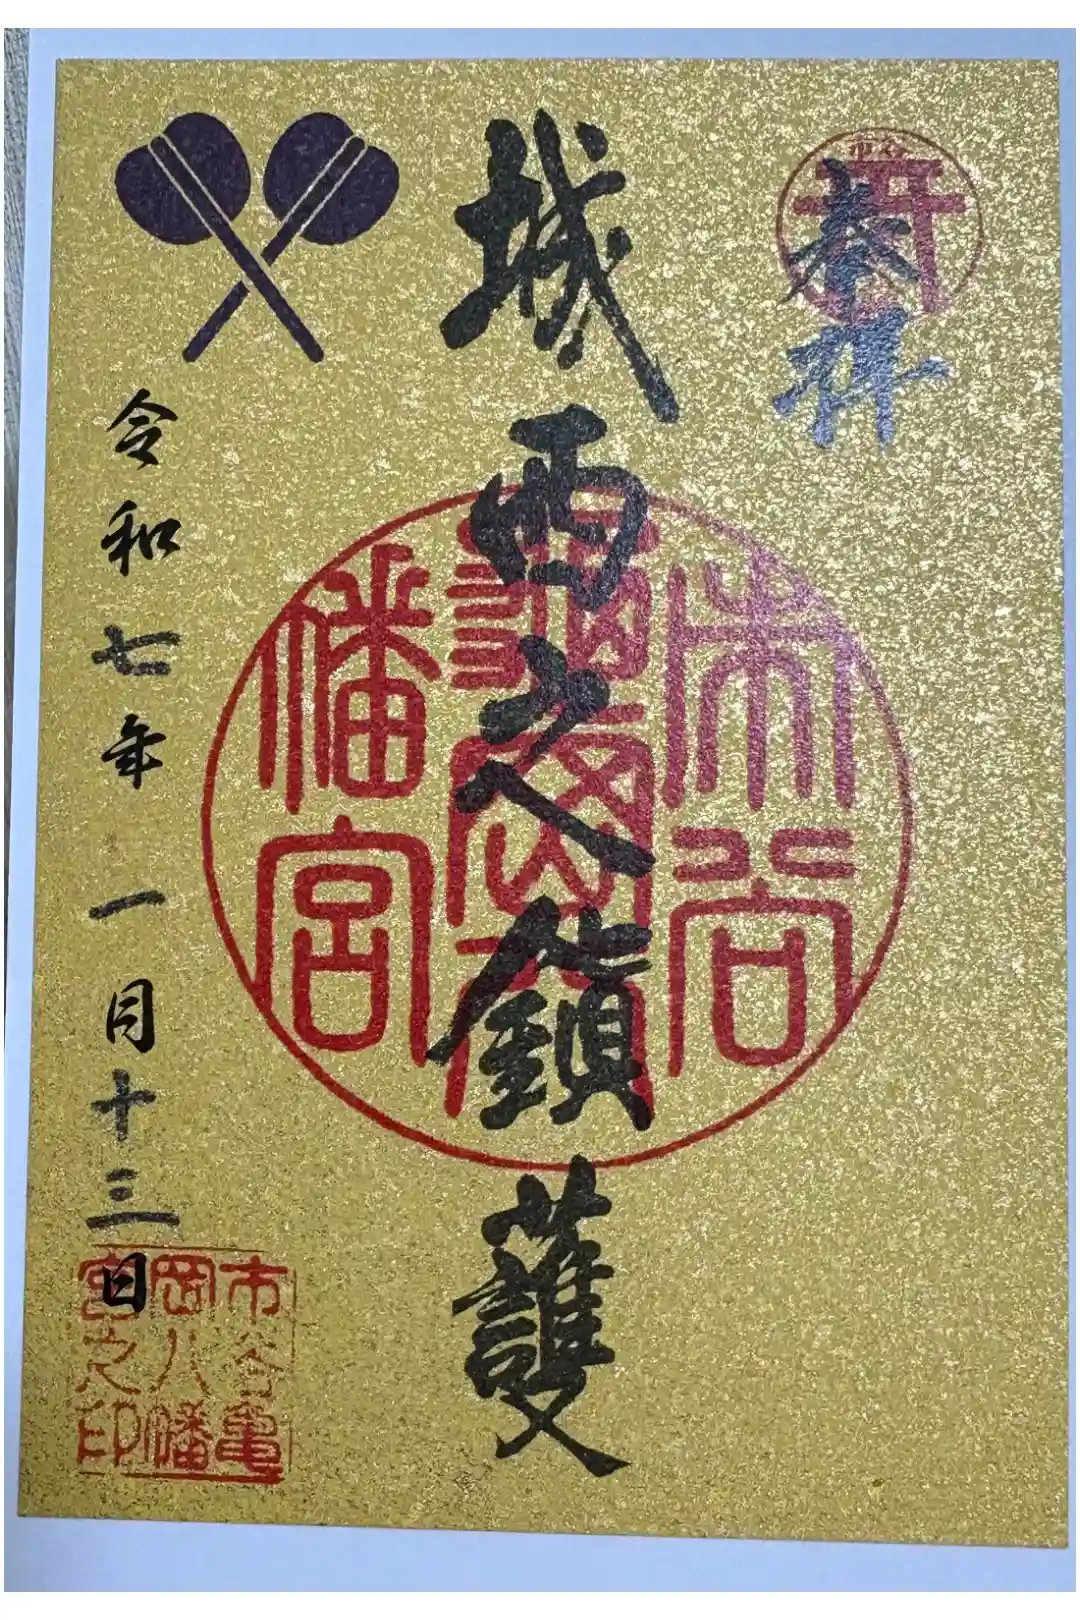 奉拝
城西之鎮護
市谷
亀岡八
幡宮
令和七年一月十三日
市谷亀
岡八幡
宮之印